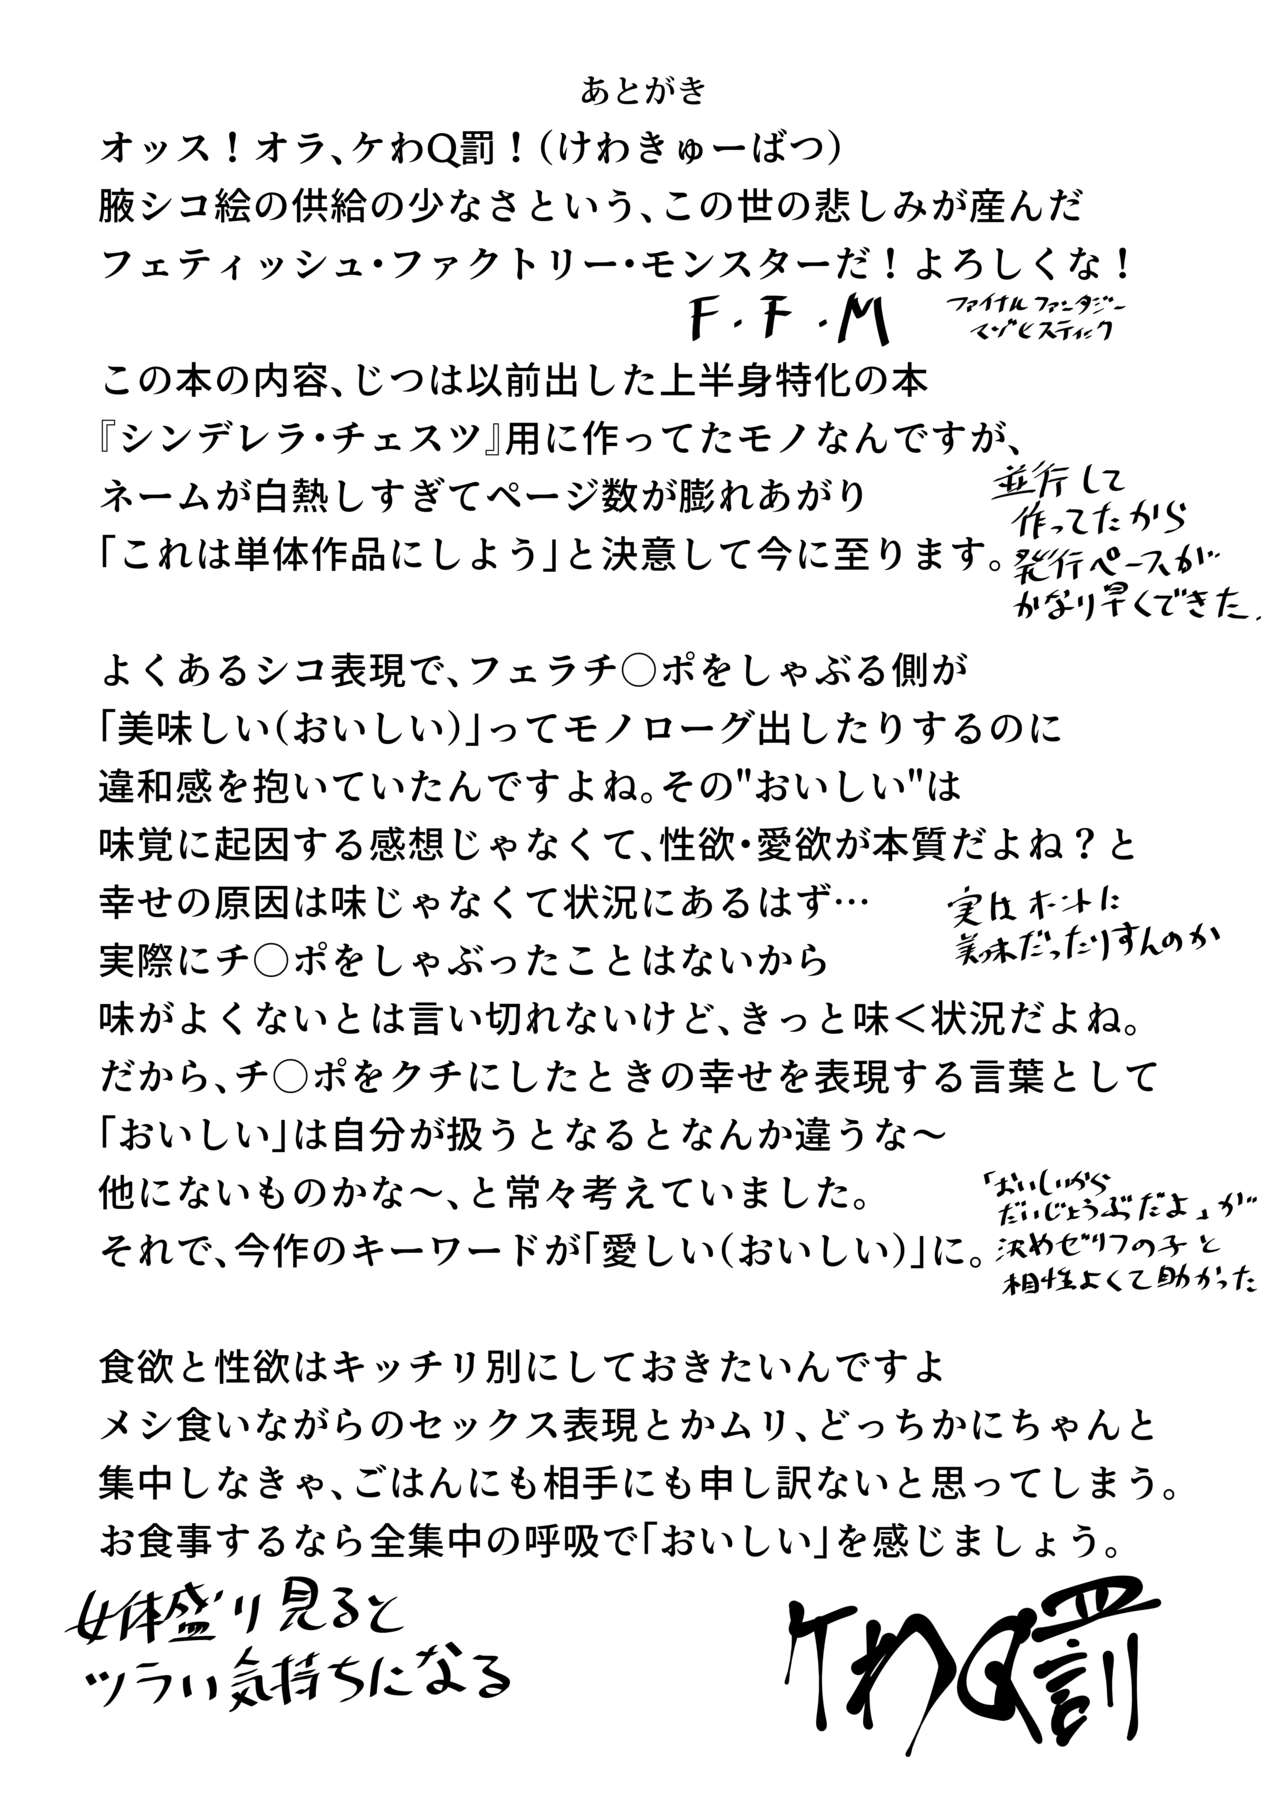 あとがき
オッス！オラ、ケわQ罰！（けわきゅーばつ）
腋シコ絵の供給の少なさという、この世の悲しみが産んだ
フェティッシュ・ファクトリー・モンスターだ！よろしくな！
F.F.M
ファイナルファンタジー
マゾヒスティック
この本の内容、じつは以前出した上半身特化の本
『シンデレラ・チェスツ』用に作ってたモノなんですが、
ネームが白熱しすぎてページ数が膨れあがり
「これは単体作品にしよう」と決意して今に至ります。
並行して
作ってたから
発行ペースが
かなり早くできた.
よくあるシコ表現で、フェラチ◯ポをしゃぶる側が
「美味しい（おいしい）」ってモノローグ出したりするのに
違和感を抱いていたんですよね。その"おいしい"は
味覚に起因する感想じゃなくて、性欲・愛欲が本質だよね？と
幸せの原因は味じゃなくて状況にあるはず…
実はホントに
美味だったりすんのか
実際にチ◯ポをしゃぶったことはないから
味がよくないとは言い切れないけど、きっと味＜状況だよね。
だから、チ◯ポをクチにしたときの幸せを表現する言葉として
「おいしい」は自分が扱うとなるとなんか違うな〜
他にないものかな〜、と常々考えていました。
それで、今作のキーワードが「愛しい（おいしい）」に。
「おいしいから
だいじょうぶだよ」が
決めゼリフの子と
相性よくて助かった
食欲と性欲はキッチリ別にしておきたいんですよ
メシ食いながらのセックス表現とかムリ、どっちかにちゃんと
集中しなきゃ、ごはんにも相手にも申し訳ないと思ってしまう。
お食事するなら全集中の呼吸で「おいしい」を感じましょう。
女体盛り見ると
ツラい気持ちになる
ケわQ罰